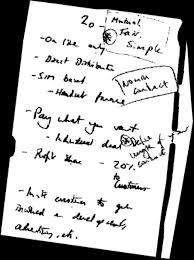 20 -
Mutual
Fair
Simple
- On line only
- Direct Distribution
- SIM based
- Handset
contract
- Pay what you want
- Individual deal
length of
contract
- 20%
to
customers
- Invite customers to get
involved in development,
advertising, etc.